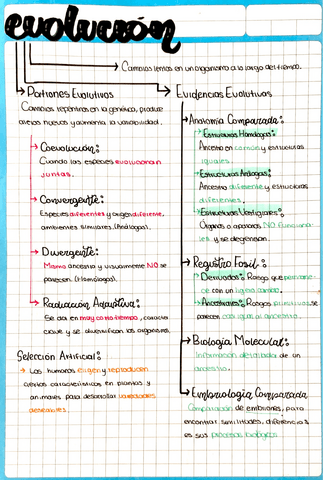 evolución
Cambios lentos en un organismo a lo largo del tiempo.
Patrones Evolutivos
Cambios repentinos en la genética, produce
alelos nuevos y aumenta la variabilidad.
Coevolución:
Cuando las especies evolucionan
juntas.
Convergente:
Especies diferentes y origen diferente,
ambientes similares (Análoga).
Divergente:
Mismo ancestro y visualmente NO se
parecen (Homóloga).
Radiación Adaptativa:
Se da en muy corto tiempo,
clave y se diversifican los organismos.
Selección Artificial:
Los humanos eligen y reproducen
ciertas características en plantas y
animales para desarrollar
deseables.
Evidencias Evolutivas
Anatomía Comparada:
Estructuras Homólogas:
Ancestro en común y estructuras
iguales.
Estructuras Análogas:
Ancestro diferente y estructuras
diferentes.
Estructuras Vestigiales:
Órganos o aparatos NO funciona-
les y se degeneran.
Registro Fósil:
Derivados: Rasgo que
con un ligero cambio.
Ancestrales: Rasgos primitivos, se
parecen casi igual al ancestro.
Biología Molecular:
Información detallada de un
ancestro.
Embriología Comparada
Comparación de embriones, para
encontrar similitudes, diferencias
es sus procesos biológicos